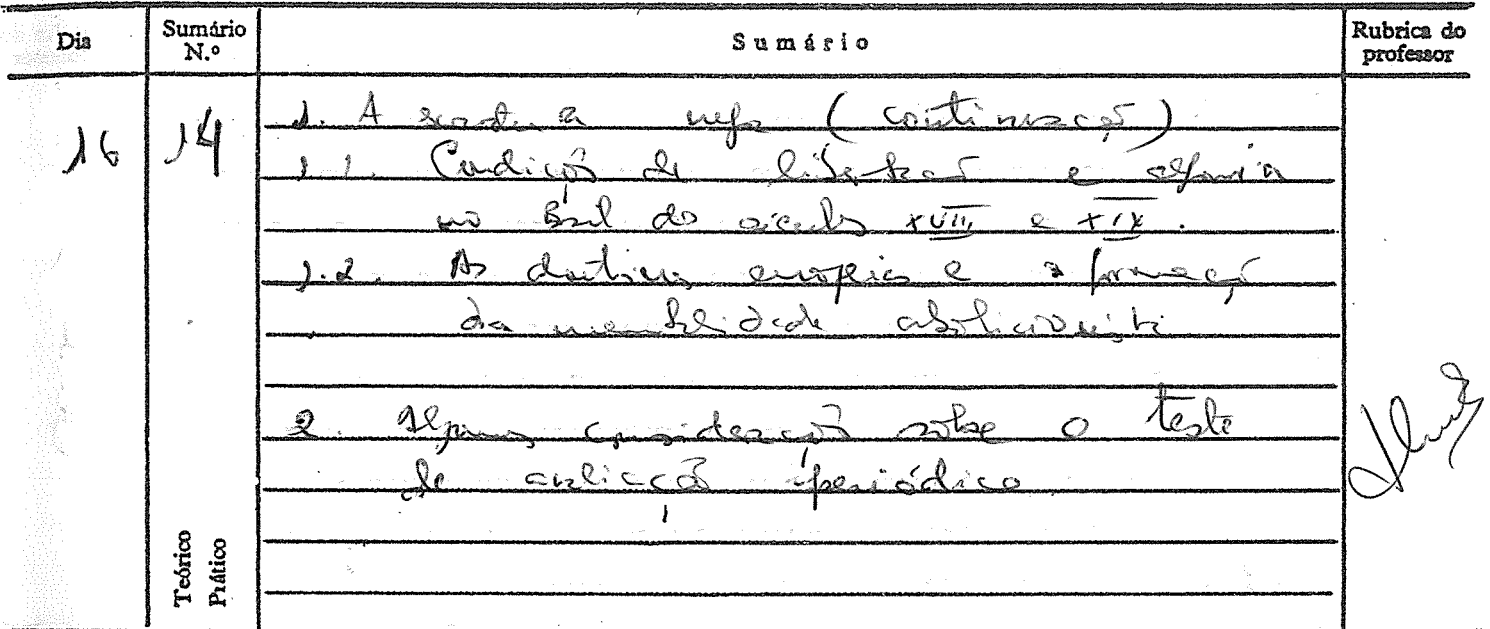 Dia
Sumário N.º
Sumário
Rubrica do professor
16
14
1. A escravatura negra (continuação)
1.1. Condições de libertação e alforria
no Brasil dos séculos XVIII e XIX.
1.2. As doutrinas europeias e a formação
da mentalidade abolicionista
2. Algumas considerações sobre o teste
de avaliação periódico
Teórico
Prático